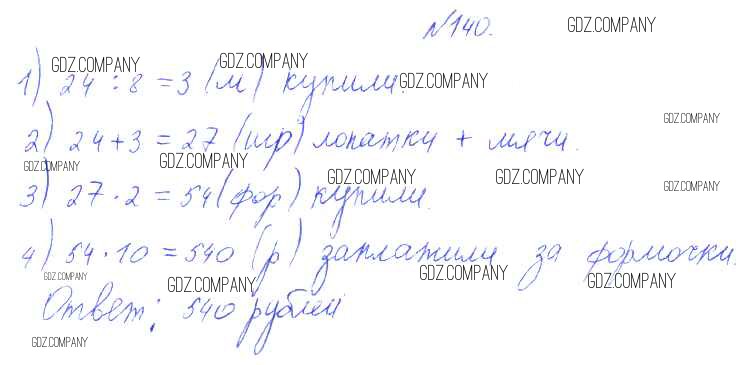 №140.
GDZ.COMPANY
GDZ.COMPANY GDZ.COMPANY
1) 24 : 8 = 3 (м) купили. GDZ.COMPANY
GDZ.COMPANY
2) 24 + 3 = 27 (шр) лопатки + мячи.
GDZ.COMPANY GDZ.COMPANY
GDZ.COMPANY GDZ.COMPANY GDZ.COMPANY
3) 27 · 2 = 54 (фор) купили.
4) 54 · 10 = 540 (р) заплатили за формочки.
GDZ.COMPANY GDZ.COMPANY GDZ.COMPANY GDZ.COMPANY
Ответ: 540 рублей
GDZ.COMPANY